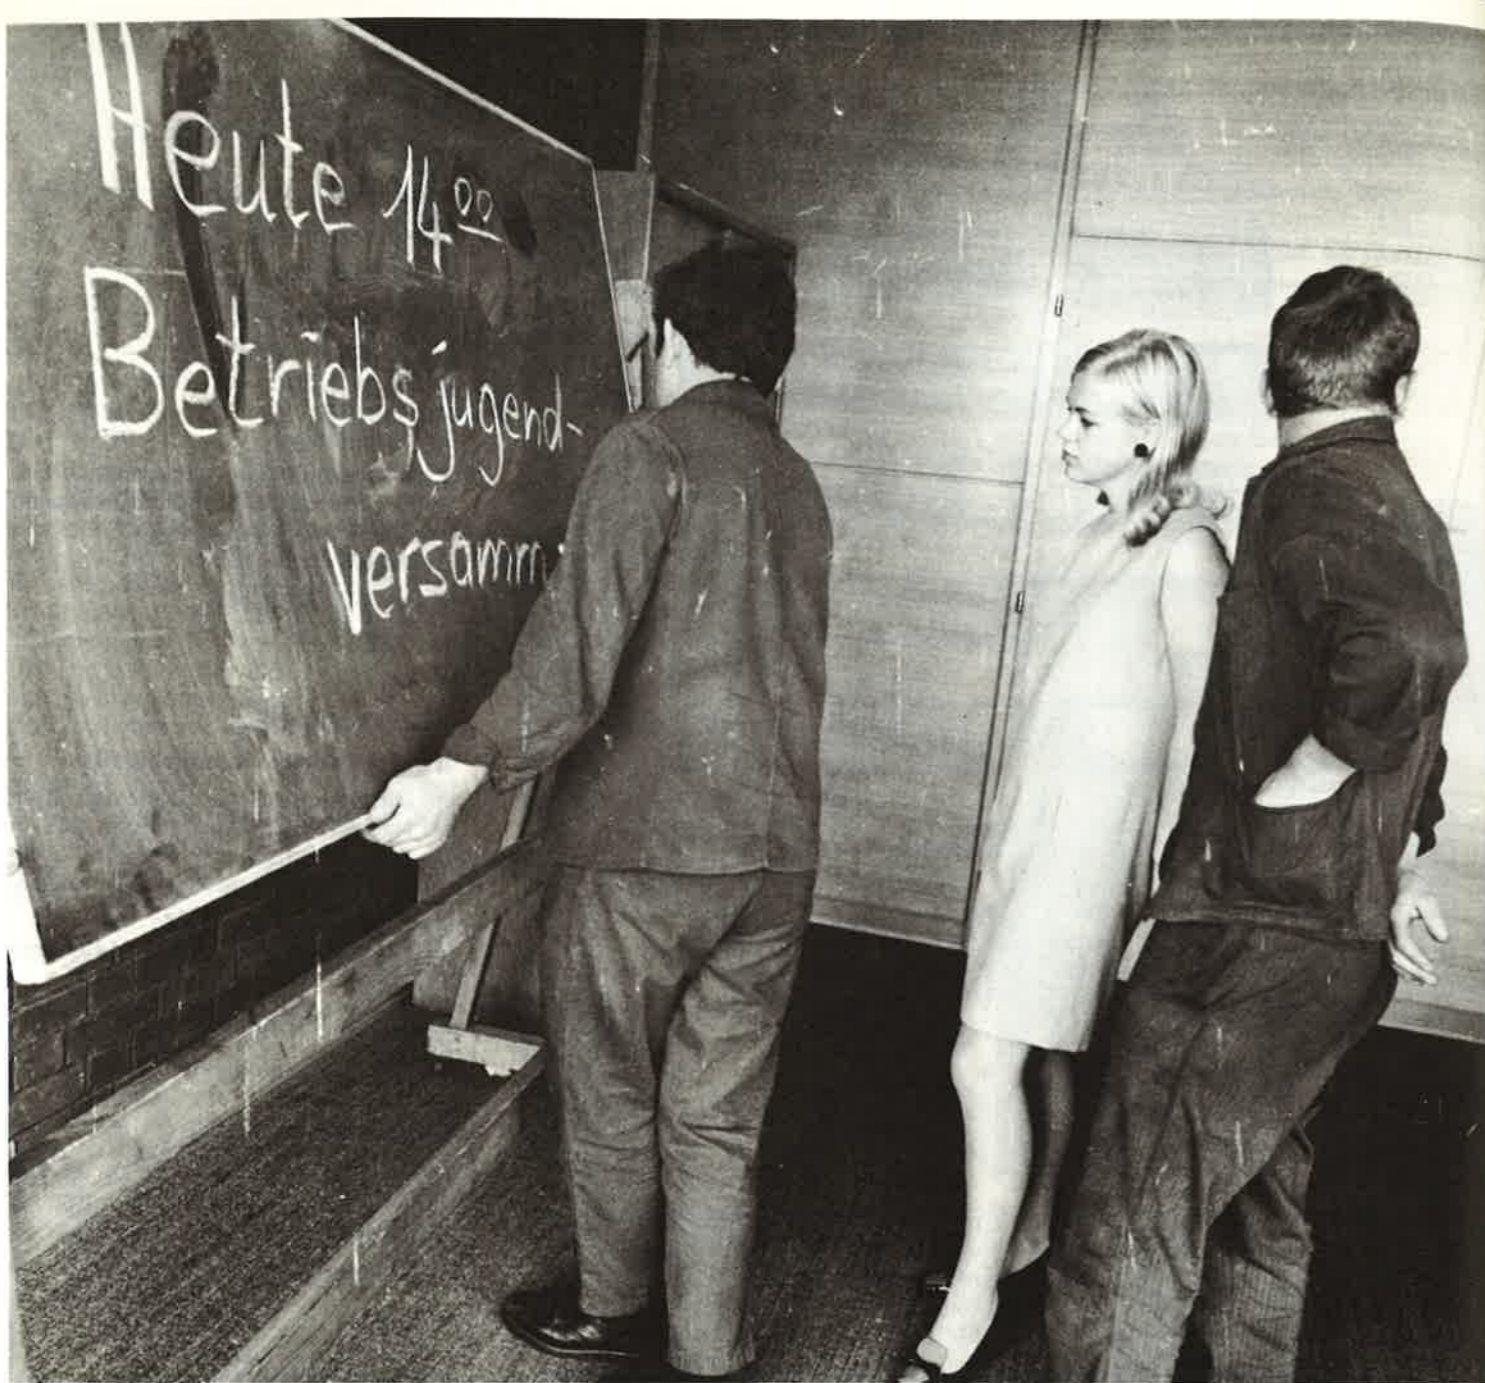 Heute 14⁰⁰
Betriebsjugend-
versamm